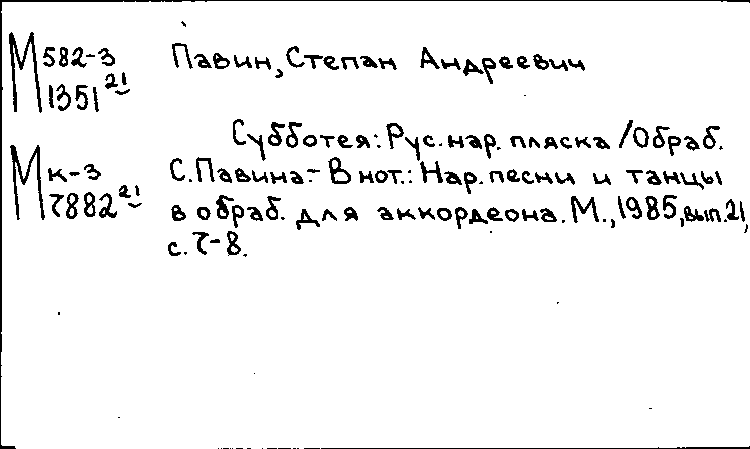 М 582-3 Павин, Степан Андреевич
1351 21
Субботея: Рус. нар. пляска / Обраб.
М к-3 С. Павина. - В нот.: Нар. песни и танцы
7882 21 в обраб. для аккордеона. М., 1985, вып. 21,
с. 7-8.